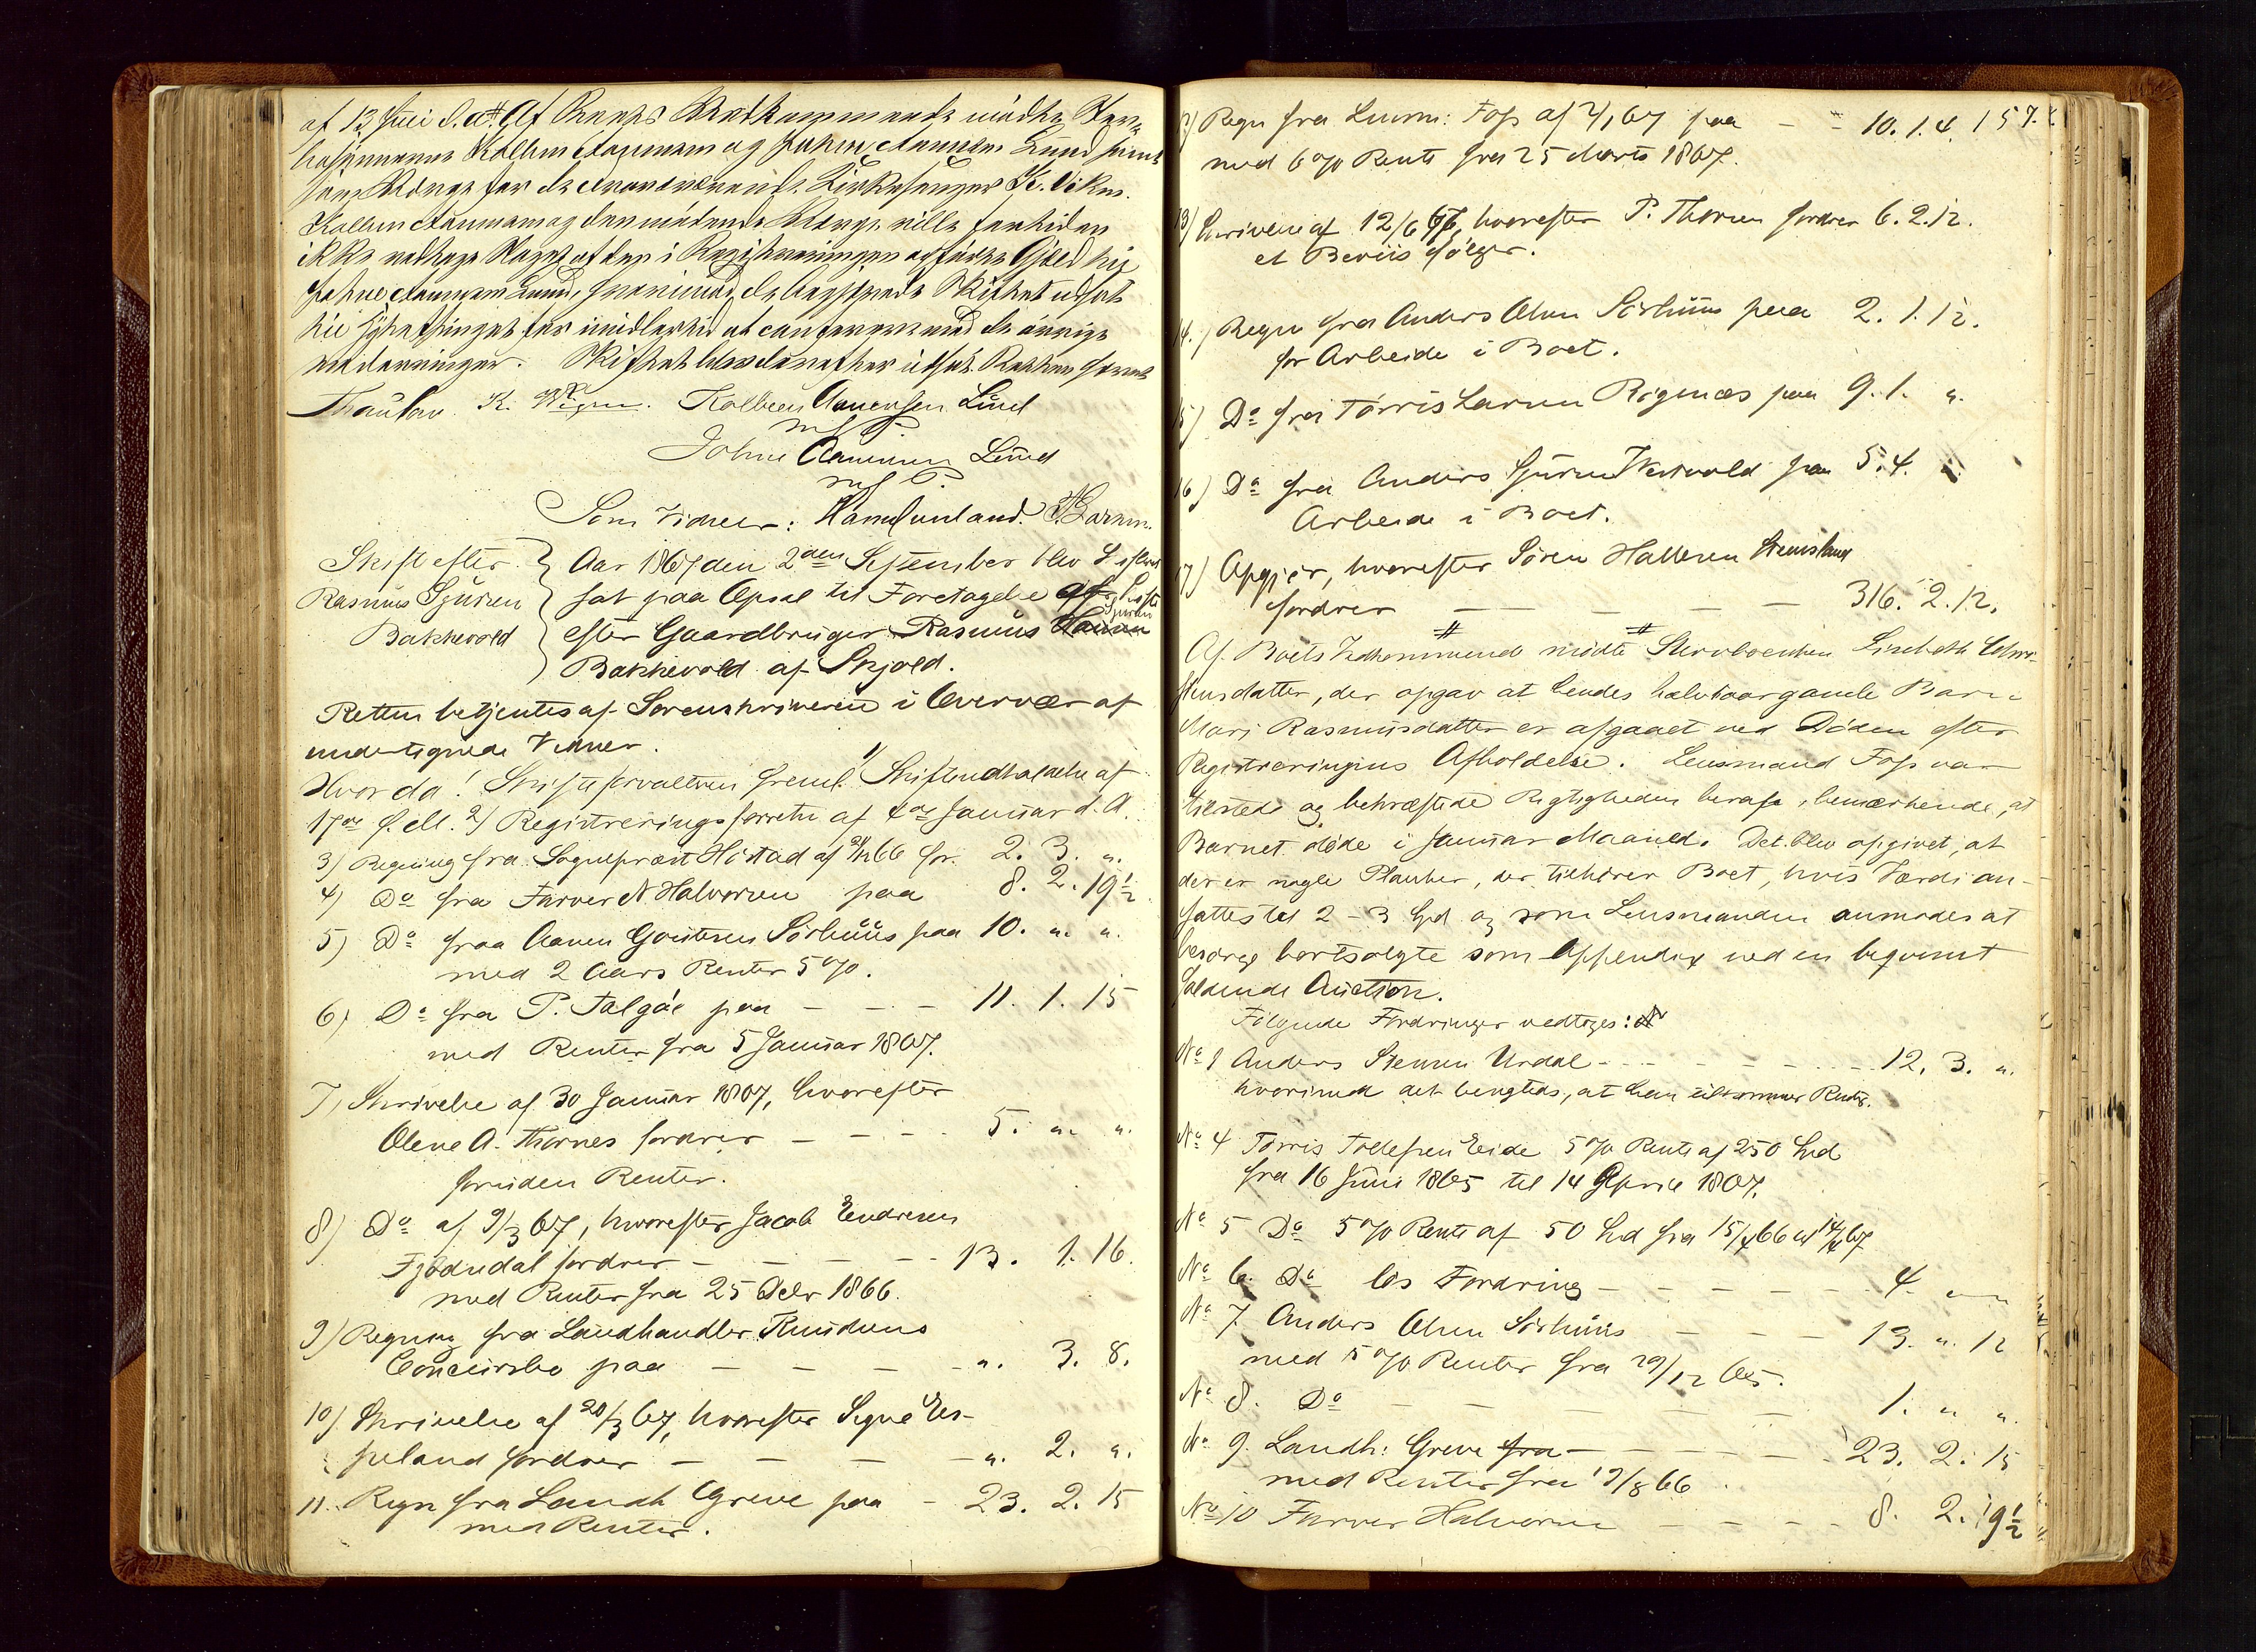 af 13 Juni d. A. Af Boets Vedkommende mødte Ster-
Kolben Aanensen og Johne Aanensen Lund samt
som Værge for de Kirkesanger K. Vikse.
Kolben Aanensen og den mødende Værge ville forinden
ikke vedtage Noget af den i Registreringen opførte Gjæld til
Johne Aanensen Lund, hvorimod de begjærede Skiftet udsat
til Høstthinget for imidlertid at conferere med de øvrige
Skiftet blev derefter udsat. Retten hævet
K. Kolben Aanensen Lund
m. f. P.
Johne Aanensen Lund
m. f. P.
Som Vidner:
Skift efter
Rasmus Sjursen
Bakkevold
Aar 1867 den 2den September blev Skifteret
sat paa Opsal til Foretagelse af Skifte
efter Gaardbruger Rasmus Sjursen
Bakkevold af Skjold.
Retten betjentes af Sorenskriveren i Overvær af
undertegnede Vidner.
Hvorda! Skifteforvalteren freml. 1) Skifteudlæggelse af
17de f. M. 2) Registreringsforretn af 4de Januar d. A.
3) Regning fra Sogneprest Hirstad af 66 for 2. 3. "
4) Do fra Farver N Halvorsen paa 8. 2. 19½
5) Do fraa Aanen Goutesen Sörhuus paa 10. " "
med 2 Aars Renter 5 %.
6) Do fra P. Talgöe paa - - - 11. 1. 15
med Renter fra 5 Januar 1867.
7) Skrivelse af 30 Januar 1867, hvorefter
Olene A. Thornes fordrer - - - 5. " "
foruden Renter.
8) Do af 9/3 67, hvorefter Jacob Endresen
Fjødndal fordrer - - - 13. 1. 16.
med Renter fra 25 Decbr 1866.
9) Regning fra Landhandler Knudsens
Concursbo paa - - - - ". 3. 8.
10) Skrivelse af 20/3 67, hvorefter Signe Es-
peland fordrer - - - - ". 2. ".
11. Regn fra Landh Greve paa - 23. 2. 15
med Renter.
157.
12) Regn fra Lensm: Foss af 2/1 67 paa - - 10. 1. 4.
med 6 % Rente fra 25 Marts 1867.
13) Skrivelse af 12/6 67, hvorefter P. Thorsen fordrer 6. 2. 12.
et Beviis følger.
14.) Regn fra Anders Olsen Sörhuus paa 2. 1. 12.
for Arbeide i Boet.
15) Do fra Tørris Larsen Rognæs paa 9. 1. "
16) Do fra Anders Sjursen paa 5. 4. "
Arbeide i Boet.
17) Opgjør, hvorefter Søren Halvorsen Stensland
fordrer - - - - - 316. 2. 12.
Af Boets Vedkommende mødte Sterboenken Lisebeth Chri-
stensdatter, der opgav at hendes halvtaargamle Barn
Mari Rasmusdatter er afgaaet ved Døden efter
Registreringens Afholdelse. Lensmand Foss var
tilstede og bekræftede Rigtigheden heraf, bemærkende, at
Barnet døde i Januar Maaned. Det blev opgivet, at
der er nogle Planker, der tilhører Boet, hvis Værdi an-
sattes til 2 - 3 Spd og som Lensmanden anmodes at
besørge bortsolgte som Appendix ved en beqvemt
faldende Auction.
Følgende Fordringer vedtoges:
No 1 Anders Stensen Urdal - - - - 12. 3. "
hvorimod det benegtes, at ham tilkommer Renter.
No 4 Tørris Tollefsen Eide 5 % Rente af 250 Spd
fra 16 Juni 1865 til 14 April 1867.
No 5 Do 5 % Rente af 50 Spd fra 15/4 66 til 14/4 67
No 6. Do løs Fordring - - - - 4 " "
No 7 Anders Olsen Sörhuus - - - 13. " 12
med 5 % Renter fra 29/12 65.
No 8. Do - - - - - 1. " "
No 9. Landh: Greve fra - - - - 23. 2. 15
med Renter fra 19/8 66
No 10 Farver Halvorsen - - - - 8. 2. 19½